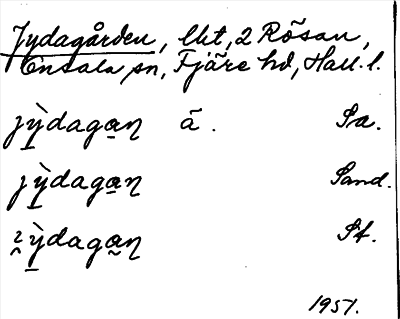 Jydagården, lht, 2 Rösan,
Onsala sn, Fjäre hd, Hall. l.
jỳ̱daga̱ɳ ā. Sa.
jỳ̱daga̱ɳ Sand.
ỳ̱daga̱ɳ St.
1951.